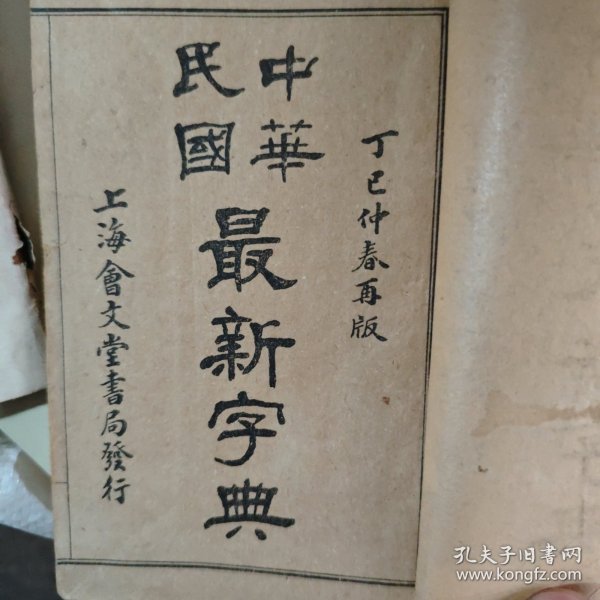 丁巳仲春再版
中華
民國
最新字典
上海會文堂書局發行
孔夫子旧书网
www.kongfz.com